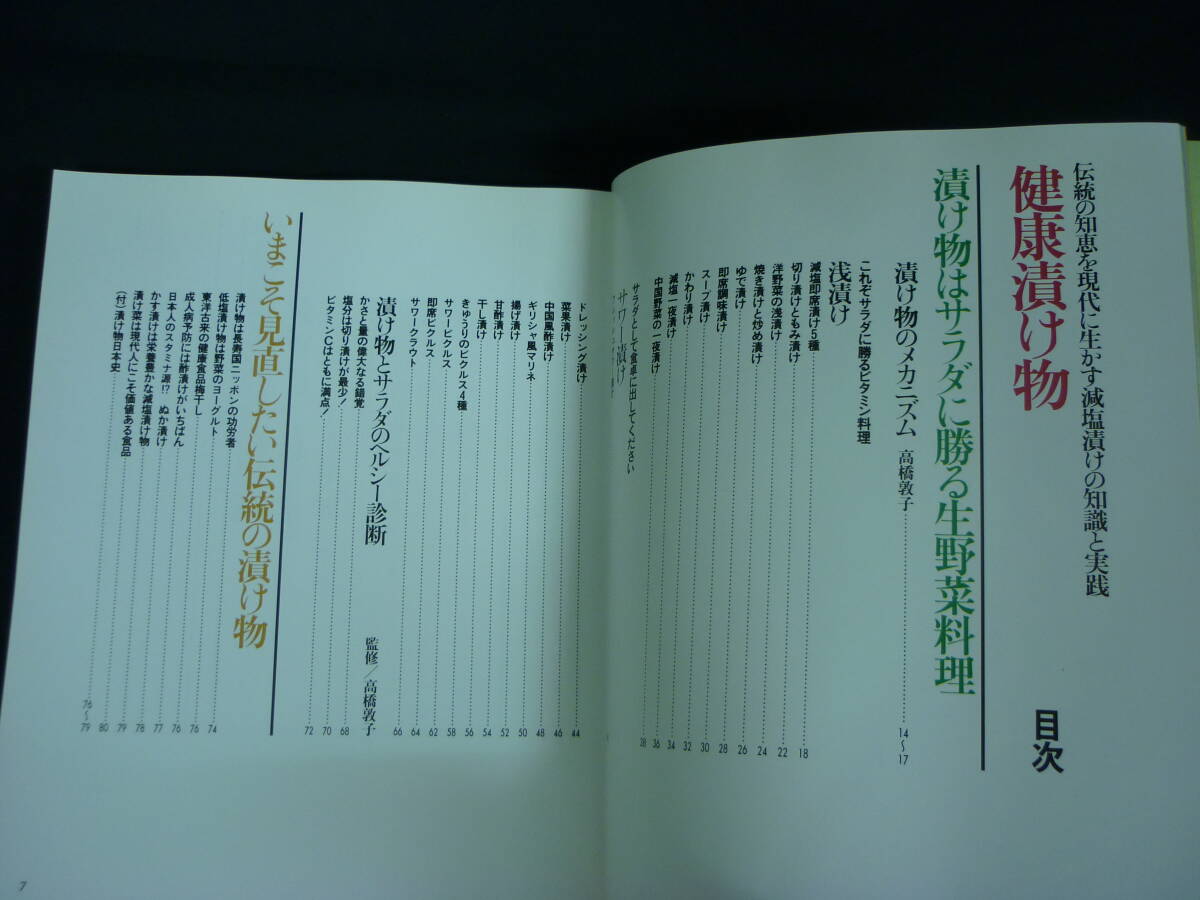 伝統の知恵を現代に生かす減塩漬けの知識と実践
健康漬け物
目次
漬け物はサラダに勝る生野菜料理
漬け物のメカニズム 高橋敦子 14〜17
これぞサラダに勝るビタミン料理
浅漬け
減塩即席漬け5種 18
切り漬けともみ漬け 22
洋野菜の浅漬け 24
焼き漬けと炒め漬け 26
ゆで漬け 28
即席調味漬け 30
スープ漬け 32
かわり漬け 34
減塩一夜漬け 36
中国野菜の一夜漬け 38
サラダとして食卓に出してください
サワー漬け
ドレッシング漬け 44
菜果漬け 46
中国風酢漬け 48
ギリシャ風マリネ 50
揚げ漬け 52
甘酢漬け 54
干し漬け 56
きゅうりのピクルス4種 58
サワーピクルス 62
即席ピクルス 64
サワークラウト 66
漬け物とサラダのヘルシー診断 監修/高橋敦子
かさと量の偉大なる錯覚 68
塩分は切り漬けが最少! 70
ビタミンCはともに満点! 72
いまこそ見直したい伝統の漬け物
漬け物は長寿国ニッポンの功労者 74
低塩漬け物は野菜のヨーグルト 76
東洋古来の健康食品梅干し 76
成人病予防には酢漬けがいちばん 77
日本人のスタミナ源!? ぬか漬け 78
かす漬けは栄養豊かな減塩漬け物 79
漬け菜は現代人にこそ価値ある食品 80
(付)漬け物日本史 76〜79
7